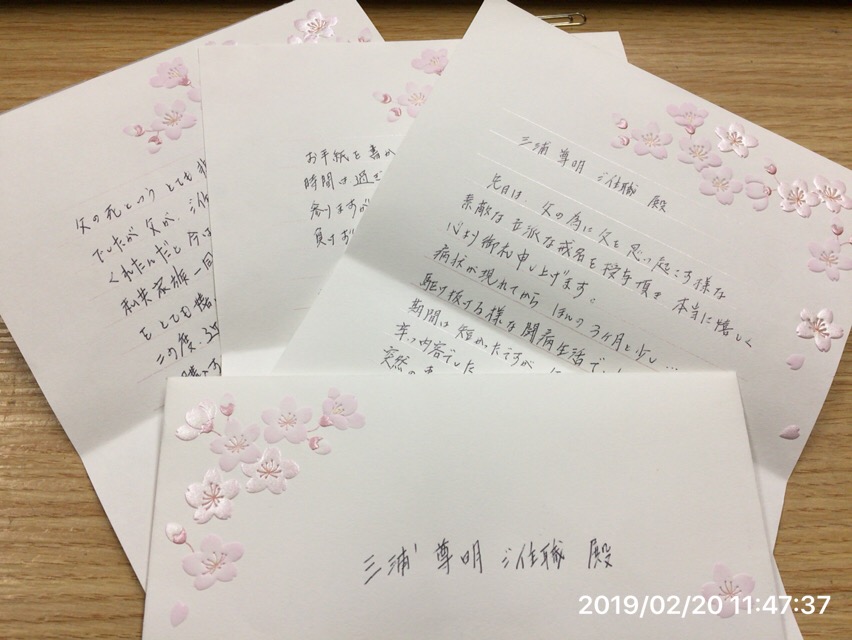 三浦 尊明 ご住職 殿
先日は、父の為に父を思い起こす様な
素敵な立派な戒名を授与頂き 本当に嬉しく
心より御礼申し上げます。
病状が現れてから ほんの3ヶ月と少し…
駆け抜ける様な闘病生活でし
期間は短かったですが
辛い内容でした
突然の
お手紙を書か
時間は過ぎ
参りますが
負けず
父の死というとても
でしたが父が、
くれたんだと 今は
私共家族一同
をとても
この度、
三浦 尊明 ご住職 殿
2019/02/20 11:47:37